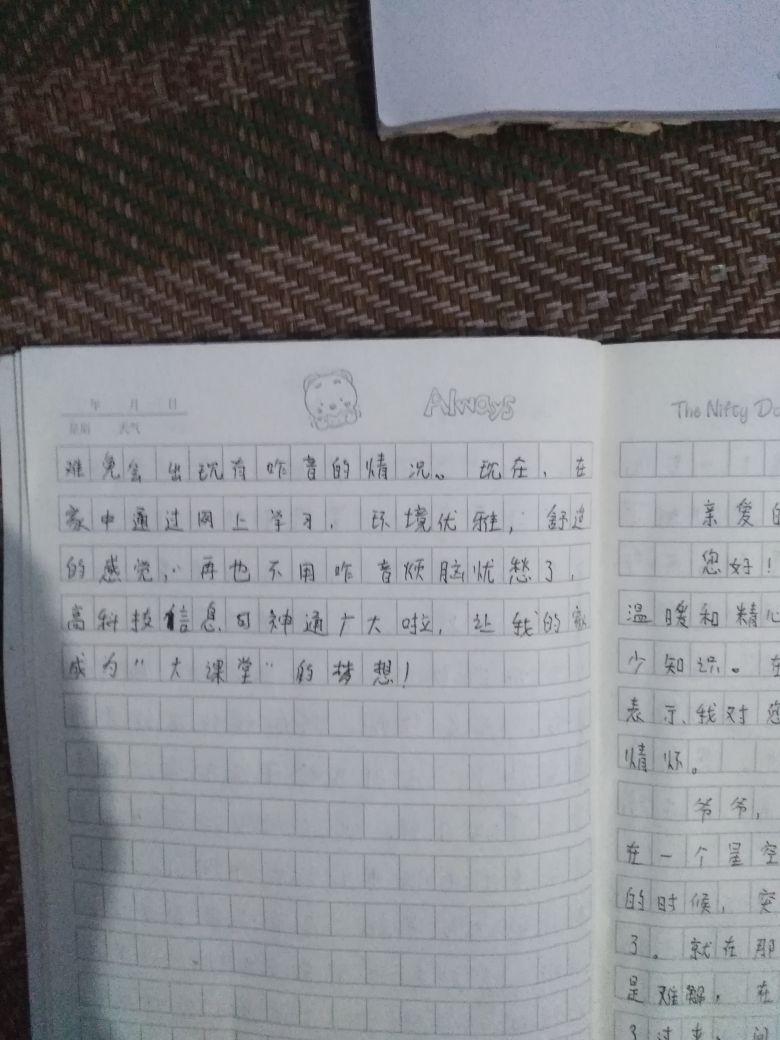 年 月 日
星期 天气
Always
难免会出现有咋音的情况。现在，在
家中通过网上学习，环境优雅，舒适
的感觉，再也不用咋音烦脑忧愁了，
高科技信息可神通广大啦，让我的家
成为"大课堂"的梦想！
The Nifty Do
亲爱的
您好！
温暖和精心
少知识。在
表示我对您
情怀。
爷爷，
在一个星空
的时候，突
了。就在那
是难解，在
了过来，问